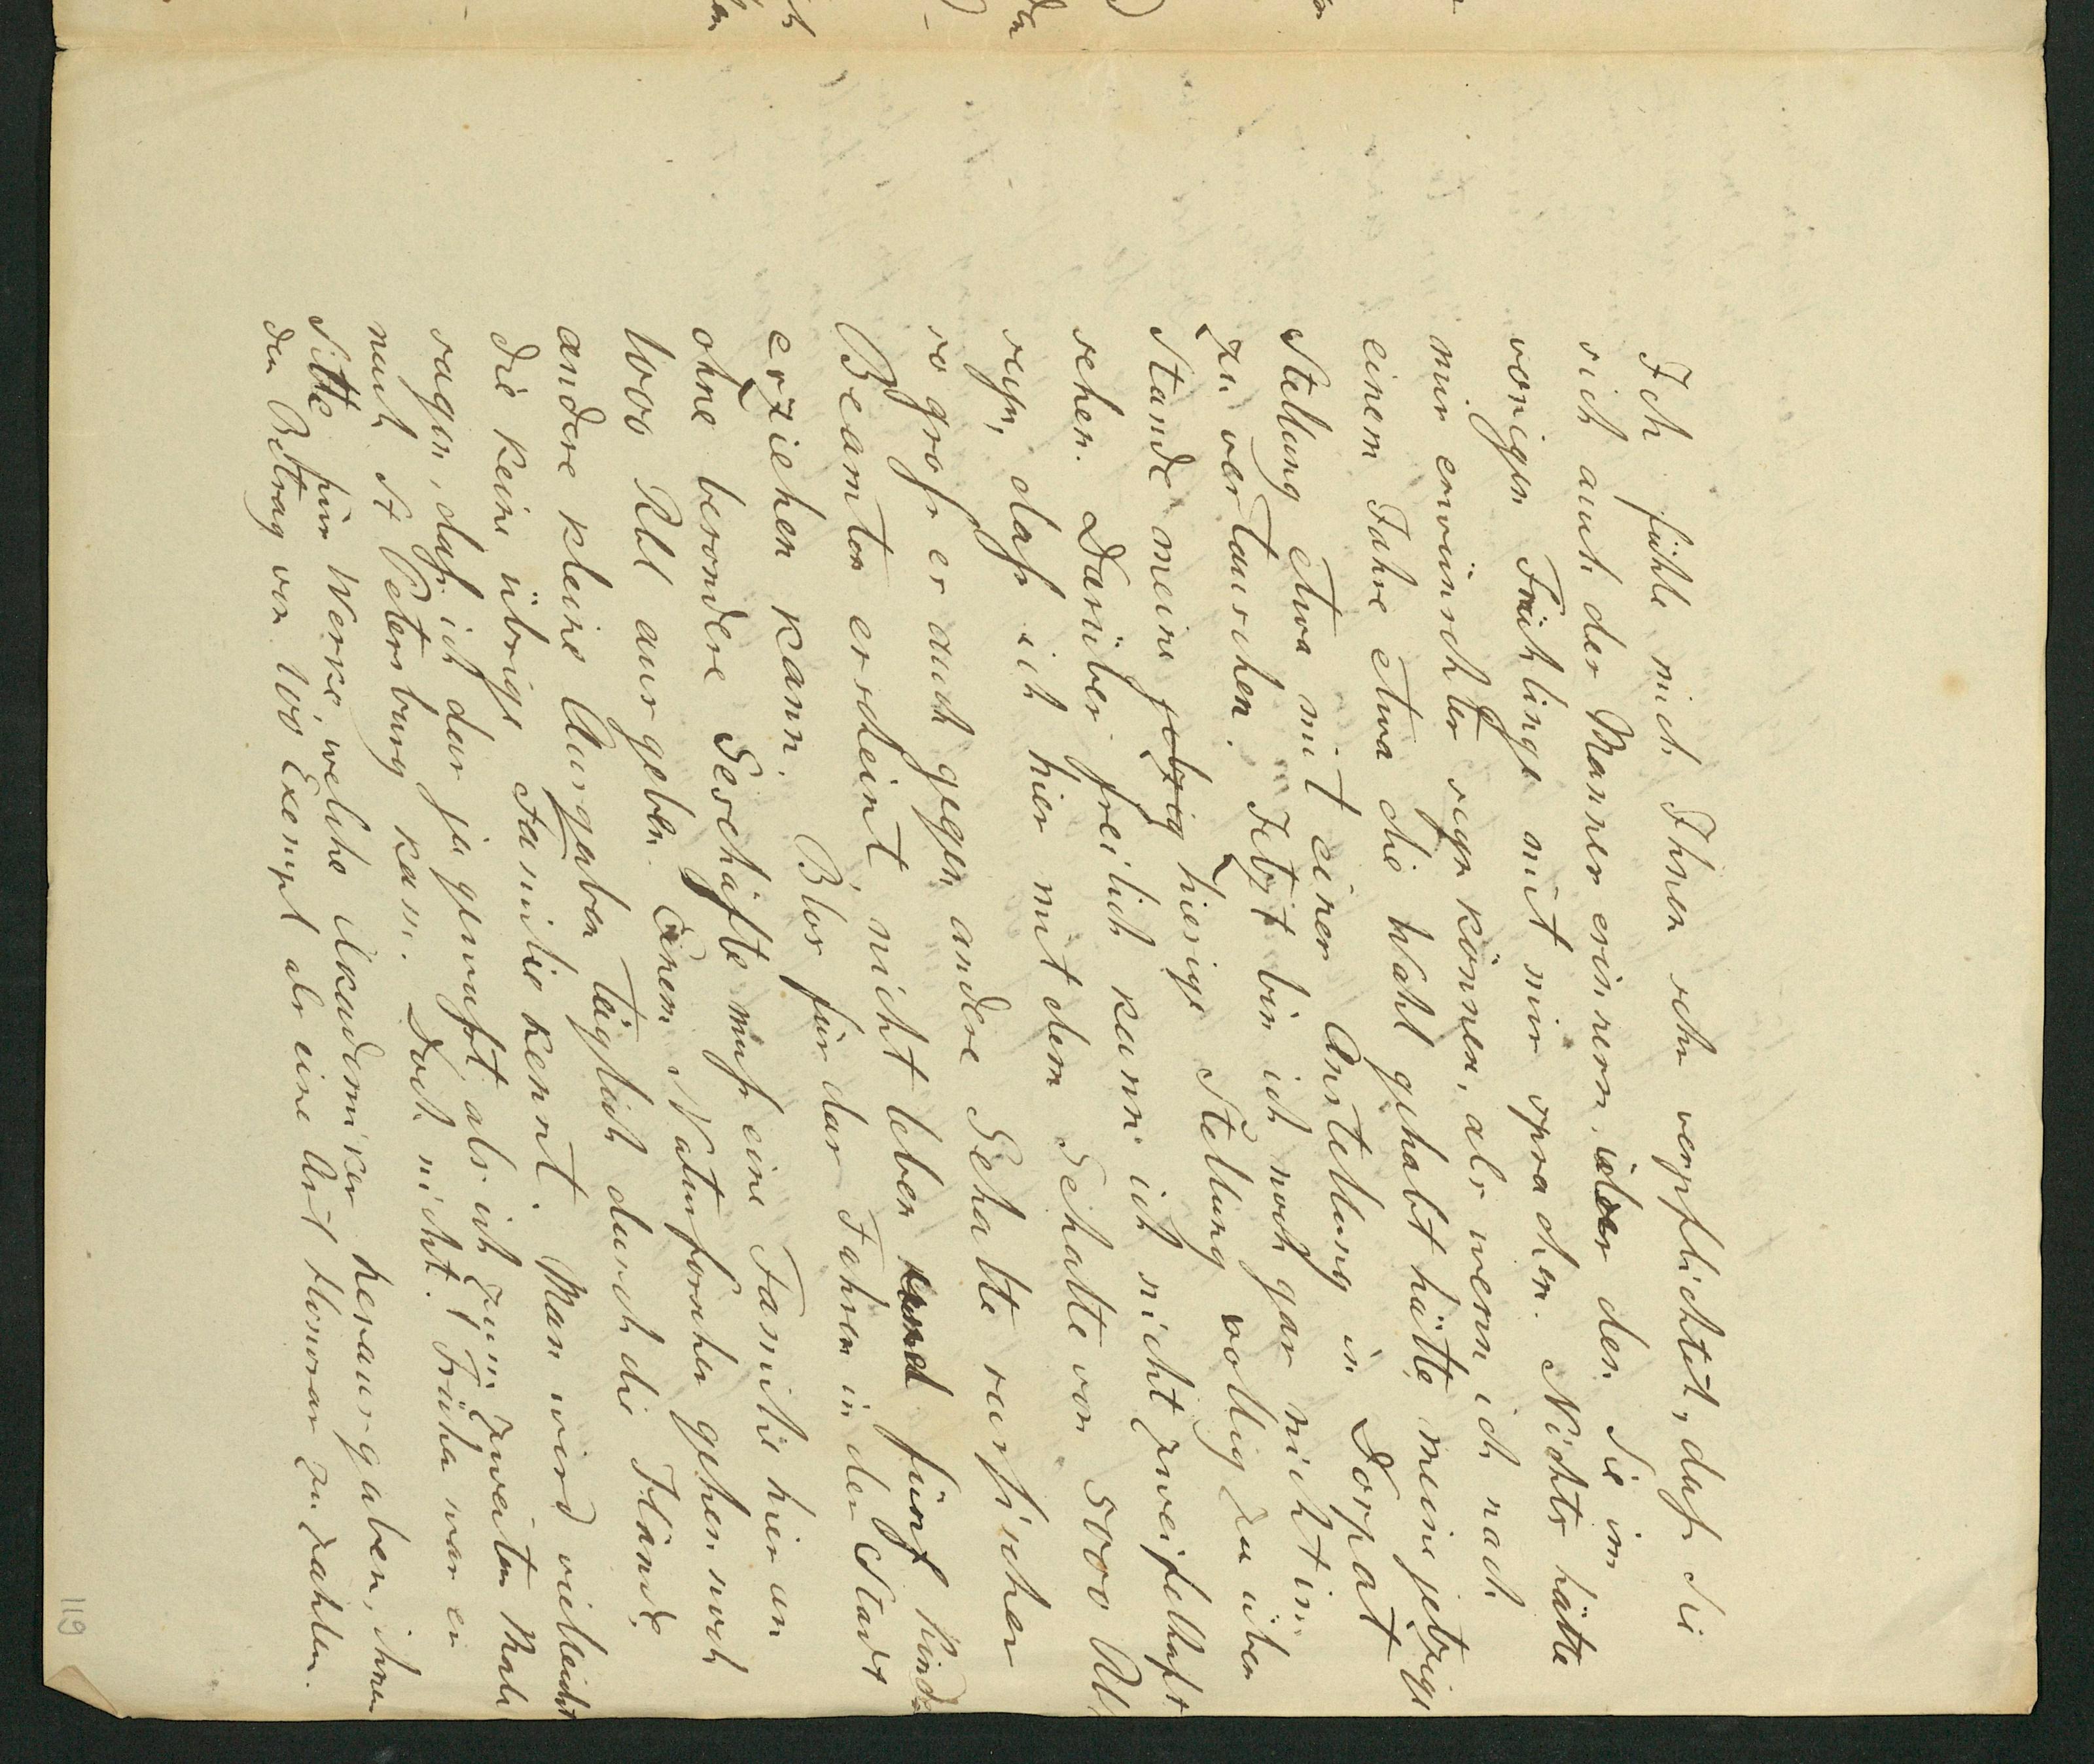 Ich fühle mich Ihnen sehr verpflichtet, daß Sie
sich auch des Mannes erinnern, über den Sie im
vorigen Frühlinge mit mir sprachen. Nichts hätte
mir erwünschter seyn können, als wenn ich nach
einem Jahre etwa die Wahl gehabt hätte meine jetzige
Stellung etwa mit einer Anstellung in Dorpat
zu vertauschen. Jetzt bin ich noch gar nicht im
Stande meine jetzig hiesige Stellung völlig zu über
sehen. Darüber freilich kann ich nicht zweifelhaft
seyn, daß ich hier mit dem Gehalte von 5000 Rbl
so groß er auch gegen andre Gehalte russischer
Beamten erscheint, nicht leben und fünf Kinder
erziehen kann. Blos für das Fahren in der Stadt
ohne besondere Geschäfte muß eine Familie hier an
1000 Rbl ausgeben. Einem Naturforscher gehen noch
andere kleine Ausgaben täglich durch die Hände
die keine übrige Familie kennt. Man wird vielleicht
sagen, daß ich das ja gewußt als ich zum zweiten Male
nach St Petersburg kam. Doch nicht! Früher war es
Sitte für Werke, welche Akademiker herausgaben, ihnen
den Betrag von 100 Exempl als eine Art Honorar zu zahlen.
119